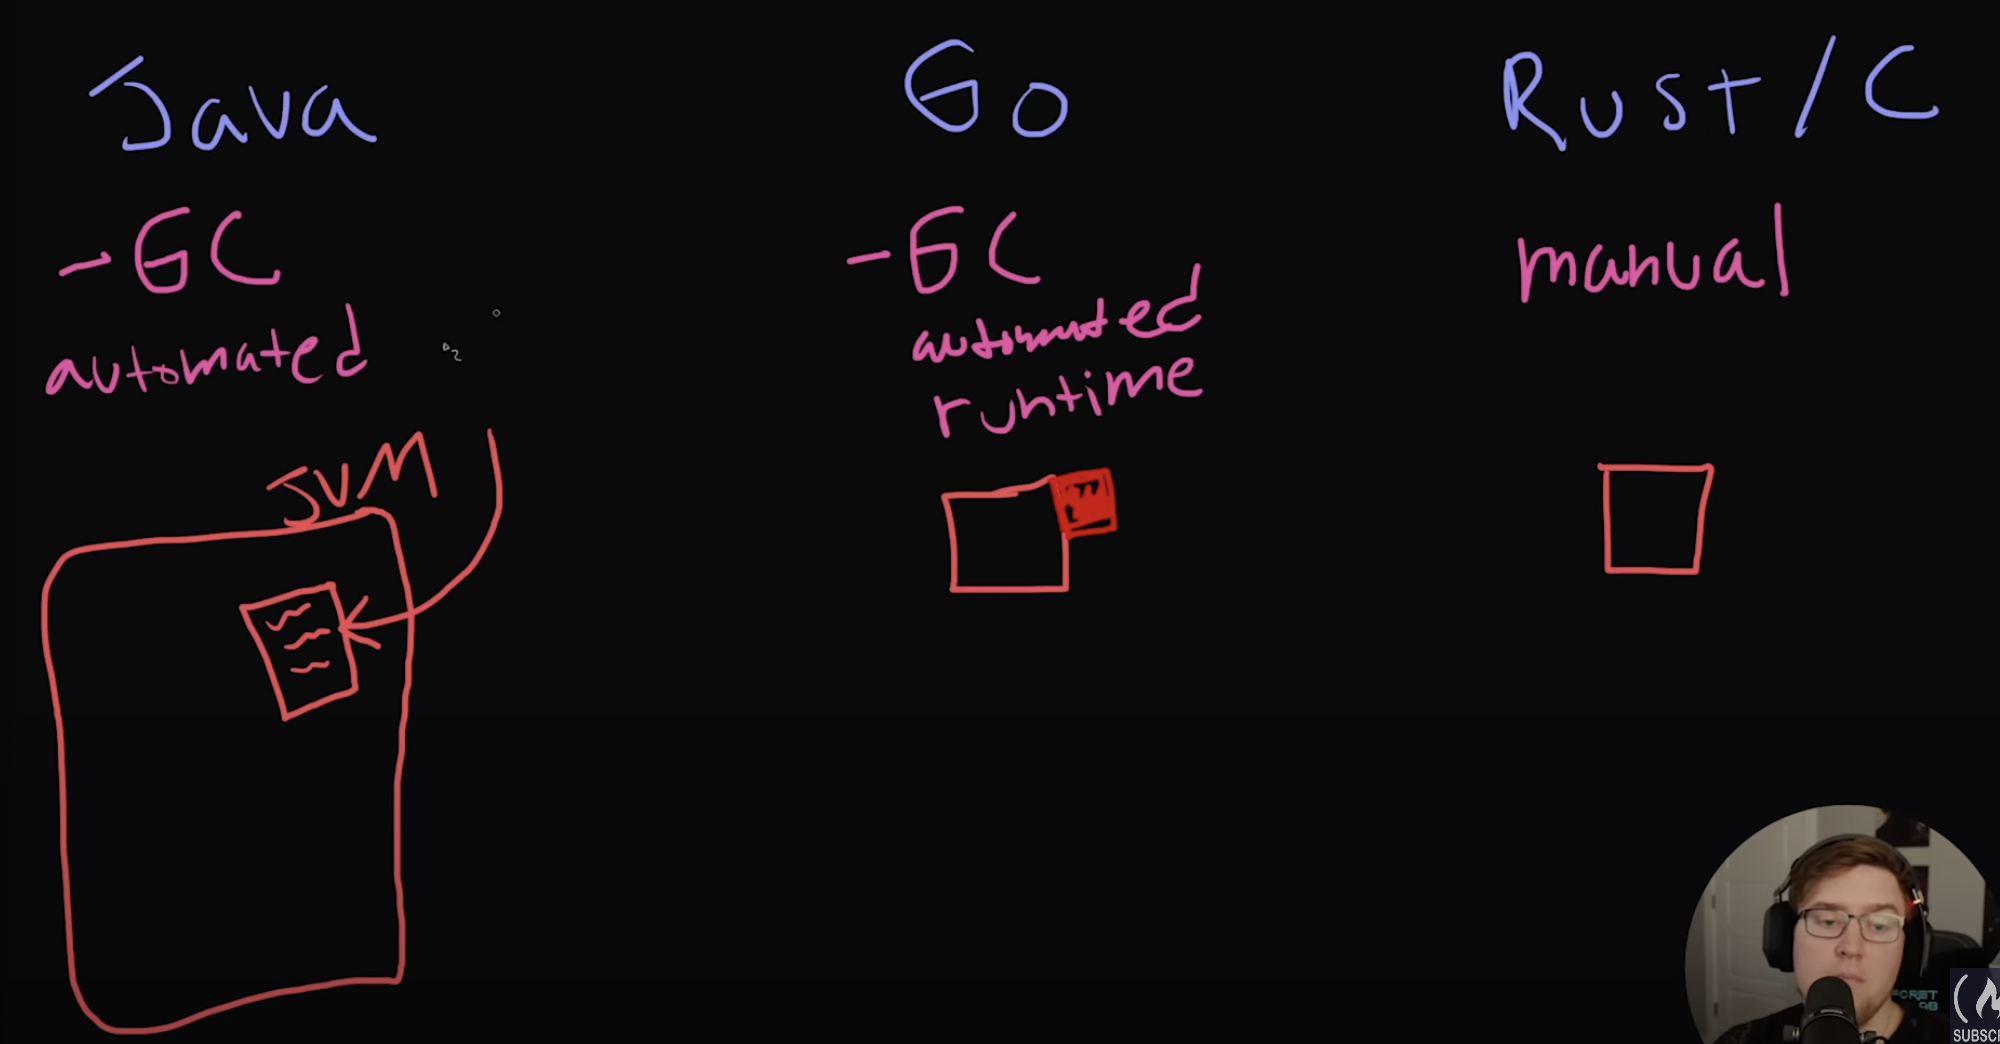 Java
- GC
automated
JVM
Go
- GC
automated
runtime
Rust/C
manual